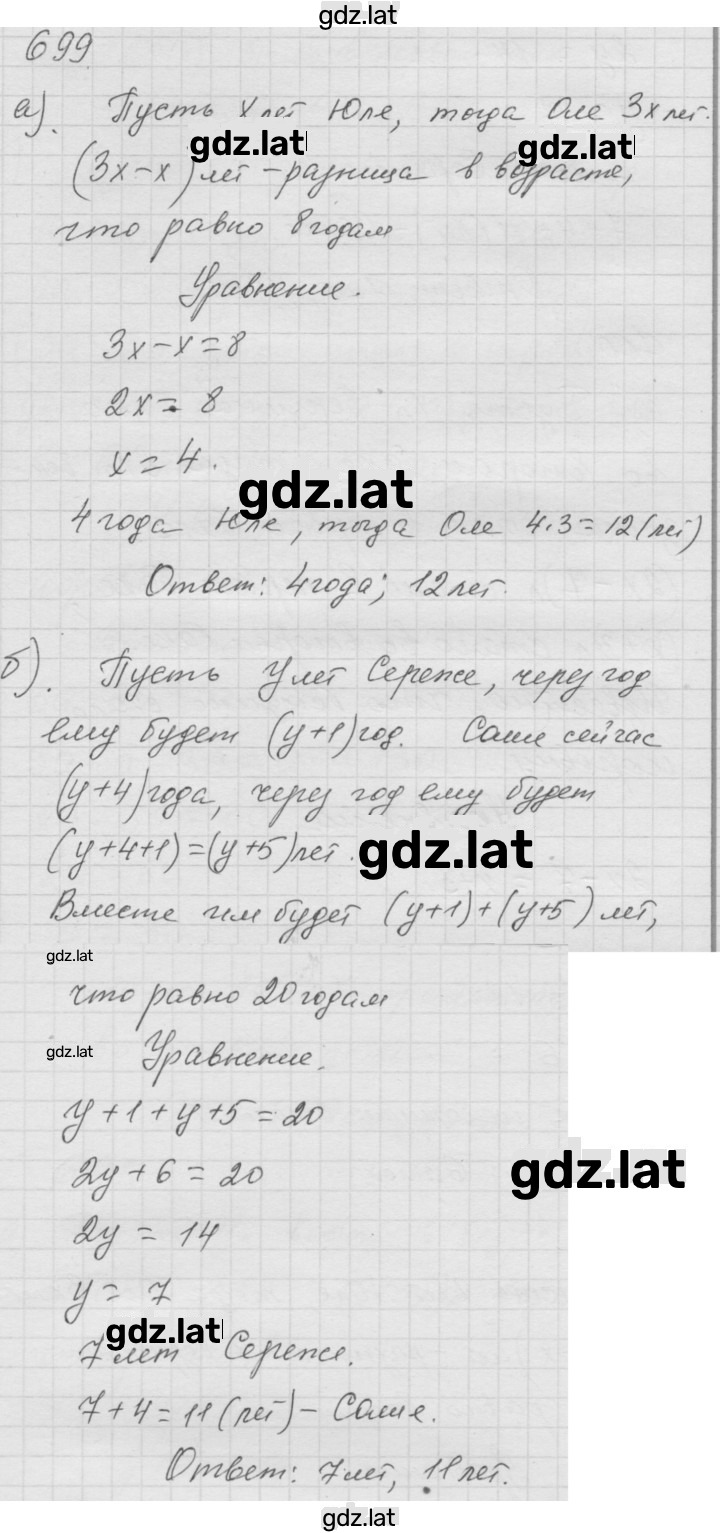 gdz.lat
699
а). Пусть x лет Юле, тогда Оле 3x лет.
gdz.lat
gdz.lat
(3x-x) лет - разница в возрасте,
что равно 8 годам
Уравнение.
3x-x=8
2x=8
x=4.
gdz.lat
4 года Юле, тогда Оле 4·3=12(лет)
Ответ: 4 года; 12 лет.
б). Пусть y лет Сереже, через год
ему будет (y+1) год. Саше сейчас
(y+4) года, через год ему будет
(y+4+1)=(y+5) лет.
gdz.lat
Вместе им будет (y+1)+(y+5) лет,
gdz.lat
что равно 20 годам
gdz.lat
Уравнение.
y+1+y+5=20
2y+6=20
gdz.lat
2y=14
y=7
gdz.lat
7 лет Сереже.
7+4=11(лет)- Саше.
Ответ: 7 лет, 11 лет.
gdz.lat